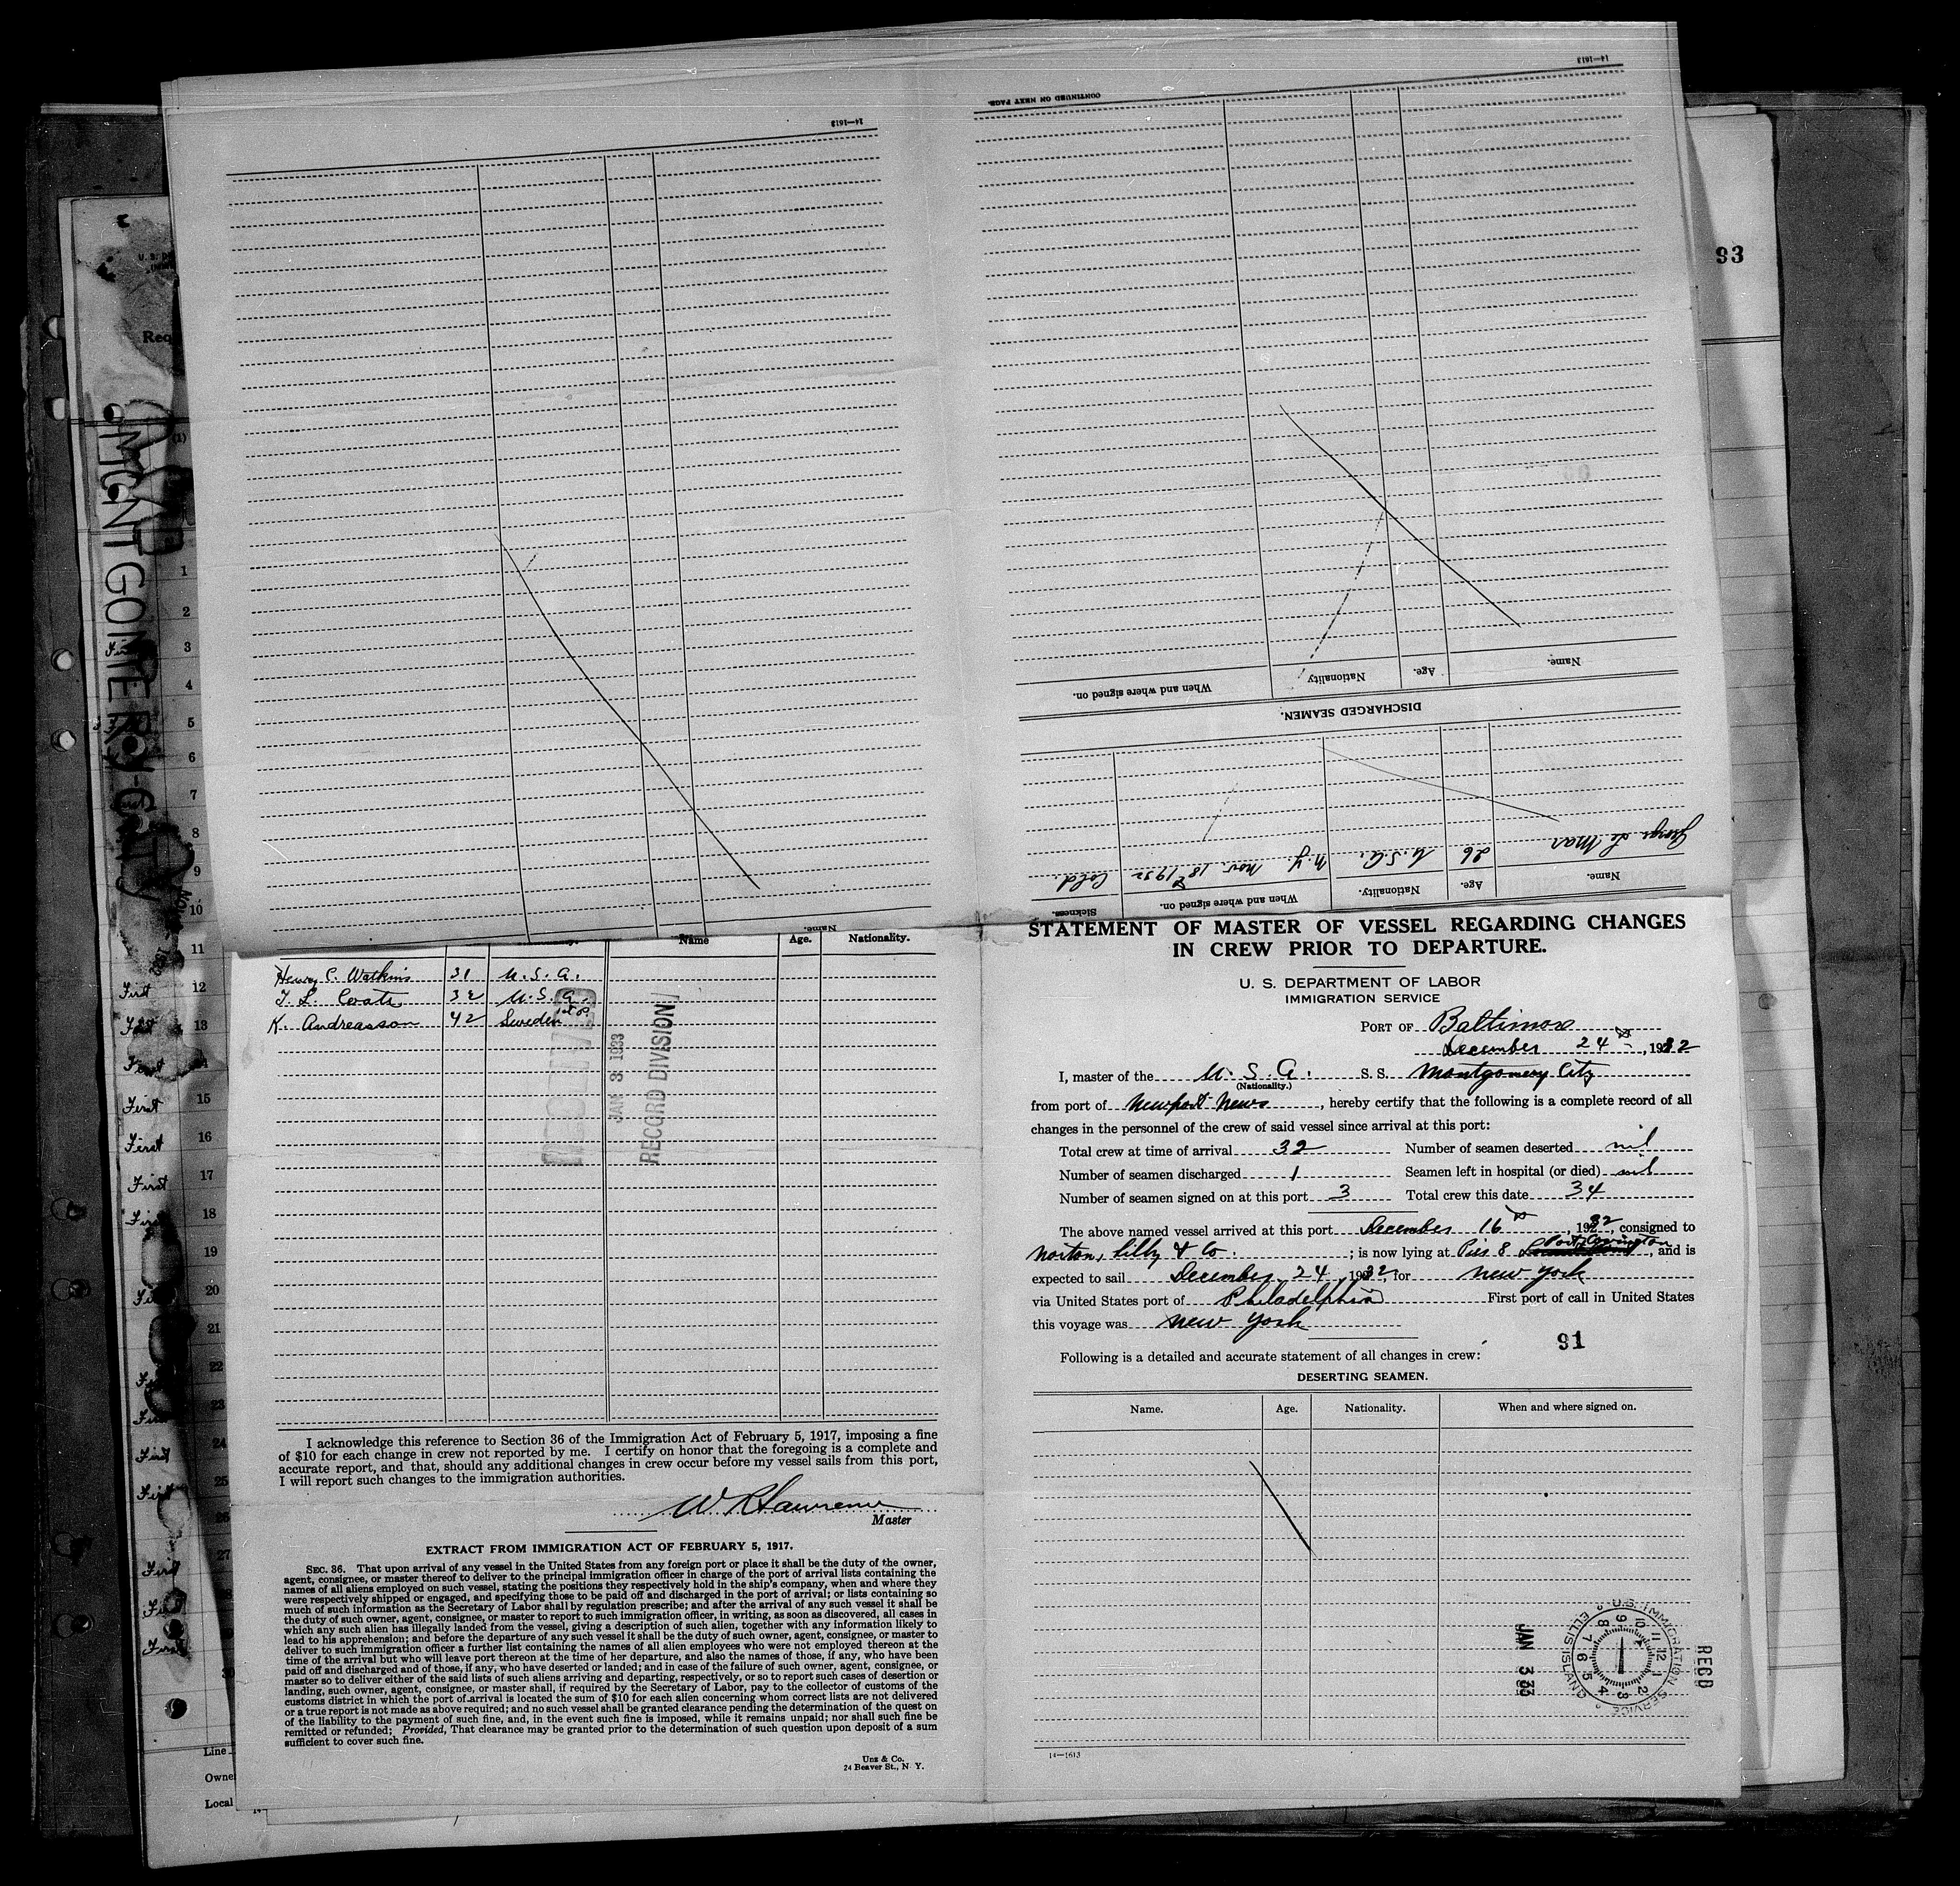 14—1613
CONTINUED ON NEXT PAGE.
14—1613
93
Req
MONTGOMERY CITY
Name. Age. Nationality. When and where signed on.
DISCHARGED SEAMEN.
George Le Mar 26 U.S.A. N.Y. Nov. 18th 1932 Cold.
Name. Age. Nationality. When and where signed on. Sickness.
Name.
Name Age. Nationality.
Henry C. Watkins 31 U.S.A.
T. L. Coats 32 U.S.A.
K. Andreasson 42 Sweden 1st P.
JAN 3 1933
RECORD DIVISION
I acknowledge this reference to Section 36 of the Immigration Act of February 5, 1917, imposing a fine
of $10 for each change in crew not reported by me. I certify on honor that the foregoing is a complete and
accurate report, and that, should any additional changes in crew occur before my vessel sails from this port,
I will report such changes to the immigration authorities.
Master
EXTRACT FROM IMMIGRATION ACT OF FEBRUARY 5, 1917.
SEC. 36. That upon arrival of any vessel in the United States from any foreign port or place it shall be the duty of the owner,
agent, consignee, or master thereof to deliver to the principal immigration officer in charge of the port of arrival lists containing the
names of all aliens employed on such vessel, stating the positions they respectively hold in the ship's company, when and where they
were respectively shipped or engaged, and specifying those to be paid off and discharged in the port of arrival; or lists containing so
much of such information as the Secretary of Labor shall by regulation prescribe; and after the arrival of any such vessel it shall be
the duty of such owner, agent, consignee, or master to report to such immigration officer, in writing, as soon as discovered, all cases in
which any such alien has illegally landed from the vessel, giving a description of such alien, together with any information likely to
lead to his apprehension; and before the departure of any such vessel it shall be the duty of such owner, agent, consignee, or master to
deliver to such immigration officer a further list containing the names of all alien employees who were not employed thereon at the
time of the arrival but who will leave port thereon at the time of her departure, and also the names of those, if any, who have been
paid off and discharged and of those, if any, who have deserted or landed; and in case of the failure of such owner, agent, consignee, or
master so to deliver either of the said lists of such aliens arriving and departing, respectively, or so to report such cases of desertion or
landing, such owner, agent, consignee, or master shall, if required by the Secretary of Labor, pay to the collector of customs of the
customs district in which the port of arrival is located the sum of $10 for each alien concerning whom correct lists are not delivered
or a true report is not made as above required; and no such vessel shall be granted clearance pending the determination of the quest on
of the liability to the payment of such fine, and, in the event such fine is imposed, while it remains unpaid; nor shall such fine be
remitted or refunded; Provided, That clearance may be granted prior to the determination of such question upon deposit of a sum
sufficient to cover such fine.
Unz & Co.
24 Beaver St., N. Y.
STATEMENT OF MASTER OF VESSEL REGARDING CHANGES
IN CREW PRIOR TO DEPARTURE.
U. S. DEPARTMENT OF LABOR
IMMIGRATION SERVICE
PORT OF Baltimore
December 24th, 1932
I, master of the U. S. A. S. S. Montgomery City
(Nationality.)
from port of Newport News, hereby certify that the following is a complete record of all
changes in the personnel of the crew of said vessel since arrival at this port:
Total crew at time of arrival 32 Number of seamen deserted nil
Number of seamen discharged 1 Seamen left in hospital (or died) nil
Number of seamen signed on at this port 3 Total crew this date 34
The above named vessel arrived at this port December 16th, 1932, consigned to
Norton, Lilly & Co. ; is now lying at Pier 8 Port Covington, and is
expected to sail December 24, 1932, for New York
via United States port of Philadelphia First port of call in United States
this voyage was New York
91
Following is a detailed and accurate statement of all changes in crew:
DESERTING SEAMEN.
Name. Age. Nationality. When and where signed on.
JAN 3 33
U.S. IMMIGRATION SERVICE ELLIS ISLAND
RECD
14—1613
Line
Owner
Local